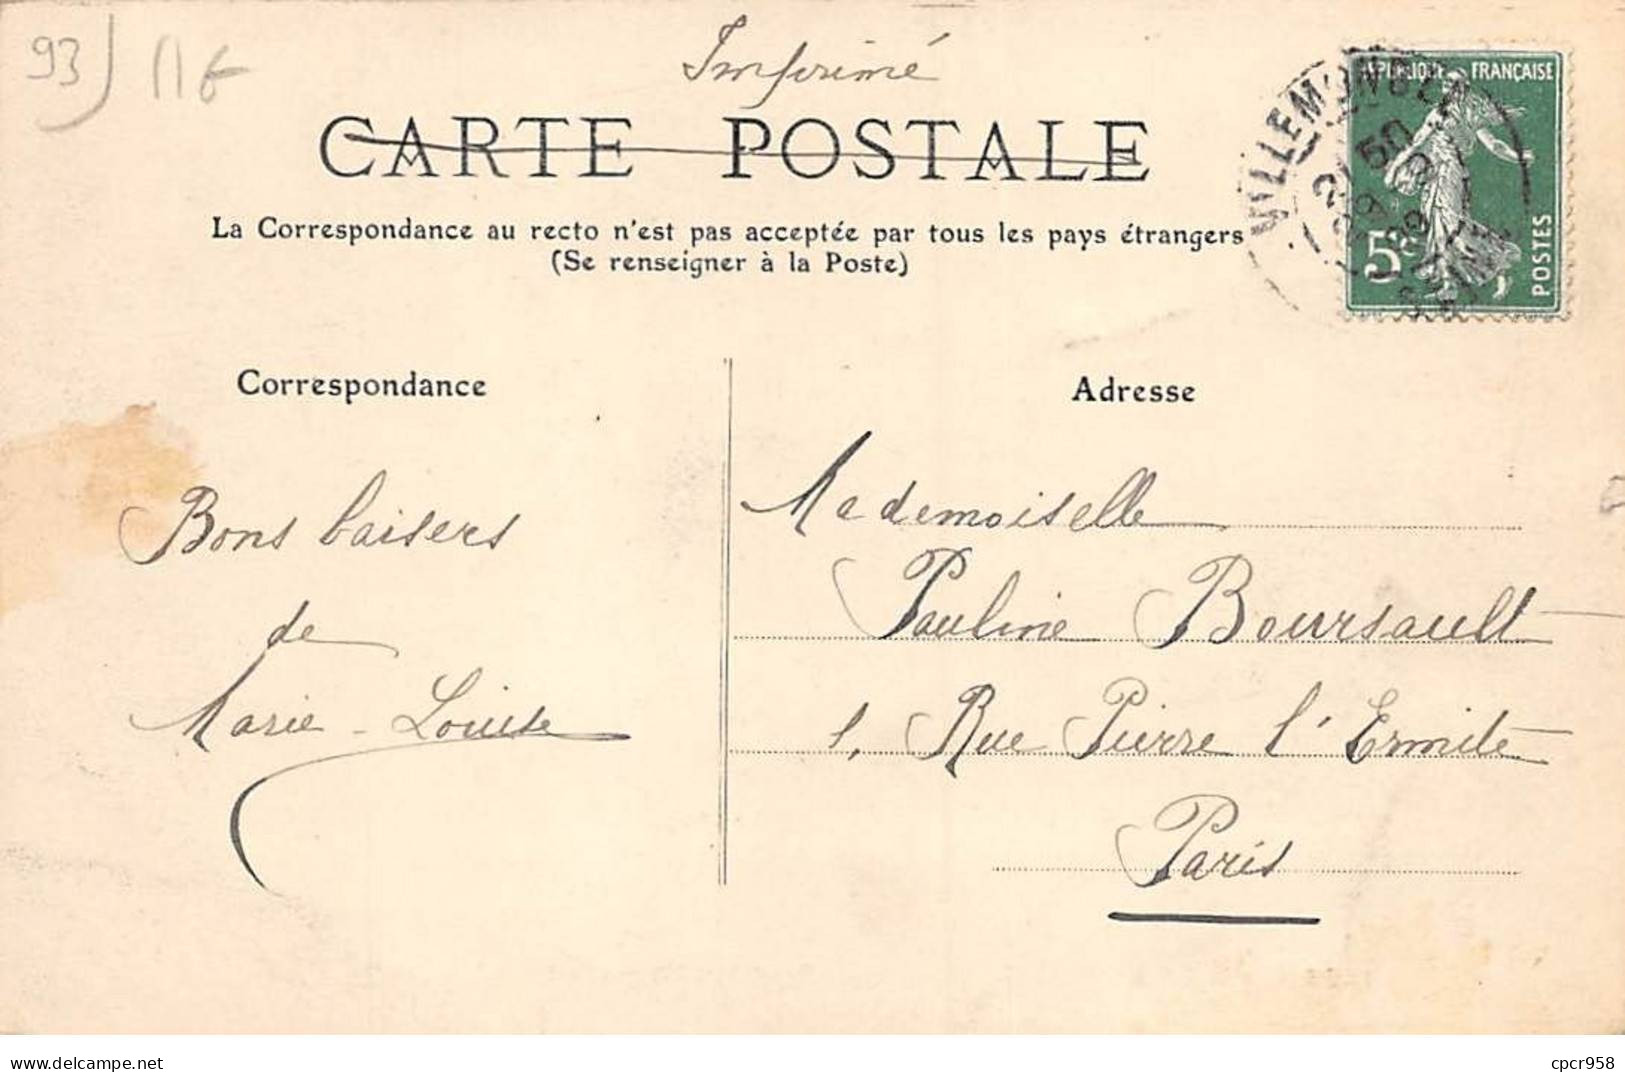 93) 11€
Imprimé
CARTE POSTALE
La Correspondance au recto n'est pas acceptée par tous les pays étrangers
(Se renseigner à la Poste)
RÉPUBLIQUE FRANÇAISE
5c
POSTES
VILLEMOMBLE
21 50
SEINE
Correspondance
Bons baisers
de
Marie-Louise
Adresse
Mademoiselle
Pauline Boursault
1, Rue Pierre l'Ermite
Paris
Delcampe.net
cpcr958